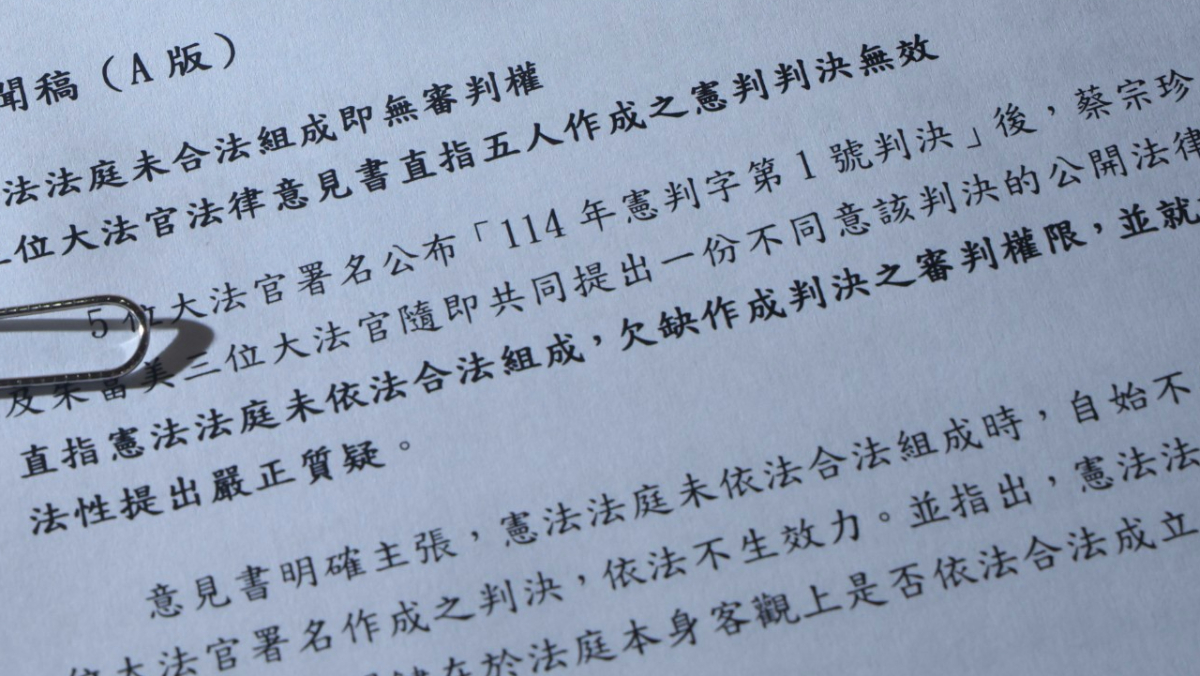 聞稿（A版）
法法庭未合法組成即無審判權
位大法官法律意見書直指五人作成之憲判判決無效
5位大法官署名公布「114年憲判字第1號判決」後，蔡宗珍
及朱富美三位大法官隨即共同提出一份不同意該判決的公開法律
直指憲法法庭未依法合法組成，欠缺作成判決之審判權限，並就
法性提出嚴正質疑。
意見書明確主張，憲法法庭未依法合法組成時，自始不
位大法官署名作成之判決，依法不生效力。並指出，憲法法
在於法庭本身客觀上是否依法合法成立